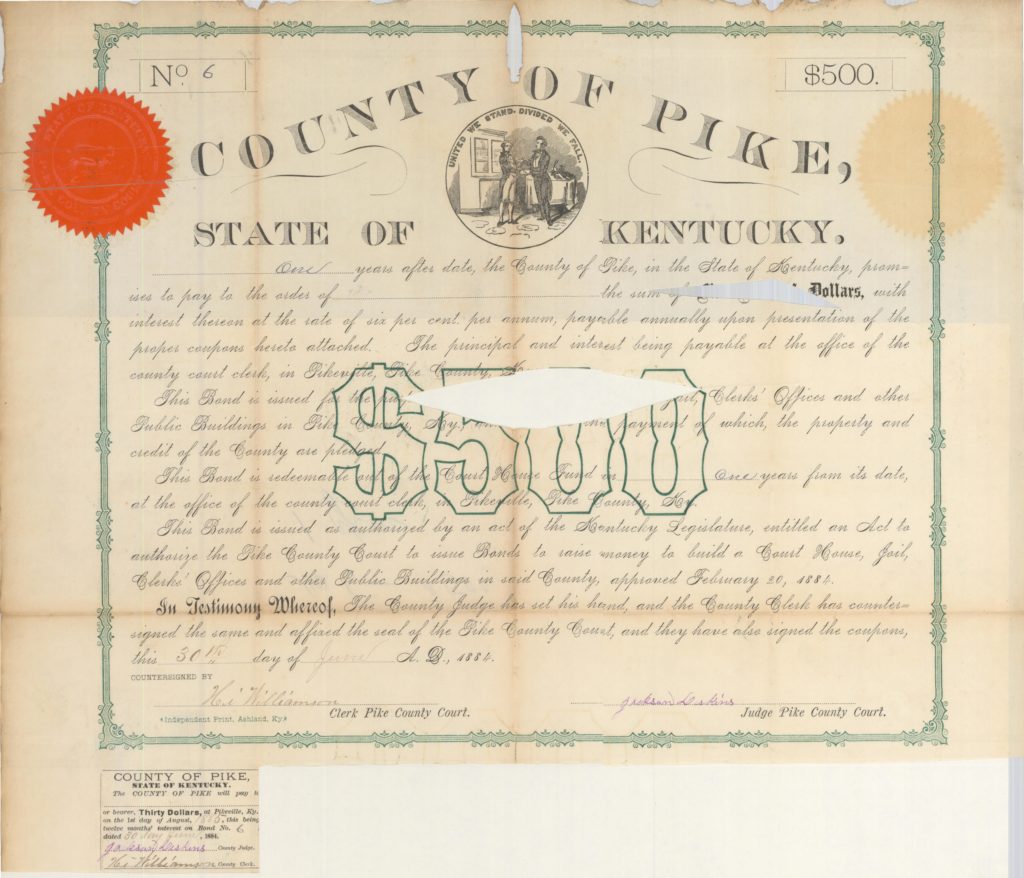 No. 6
$500.
COUNTY OF PIKE,
UNITED WE STAND, DIVIDED WE FALL.
STATE OF KENTUCKY.
One years after date, the County of Pike, in the State of Kentucky, prom=
ises to pay to the order of the sum of Dollars, with
interest thereon at the rate of six per cent. per annum, payable annually upon presentation of the
proper coupons hereto attached. The principal and interest being payable at the office of the
county court clerk, in Pikeville, Pike County,
This Bond is issued for the Jail, Clerks' Offices and other
Public Buildings in Pike County, Ky., the payment of which, the property and
credit of the County are pledged.
This Bond is redeemable out of the Court House Fund in One years from its date,
at the office of the county court clerk, in Pikeville, Pike County, Ky.
$500
This Bond is issued as authorized by an act of the Kentucky Legislature, entitled an Act to
authorize the Pike County Court to issue Bonds to raise money to build a Court House, Jail,
Clerks' Offices and other Public Buildings in said County, approved February 20, 1884.
In Testimony Whereof, The County Judge has set his hand, and the County Clerk has counter=
signed the same and affixed the seal of the Pike County Court, and they have also signed the coupons,
this 30th day of June A. D., 1884.
COUNTERSIGNED BY
Hi Williamson Clerk Pike County Court.
Jackson Deskins Judge Pike County Court.
*Independent Print, Ashland, Ky*
COUNTY OF PIKE,
STATE OF KENTUCKY.
The COUNTY OF PIKE will pay to
or bearer, Thirty Dollars, at Pikeville, Ky.
on the 1st day of August, 1885, this being
twelve months' interest on Bond No. 6
dated 30 day June, 1884.
Jackson Deskins County Judge.
Hi Williamson County Clerk.